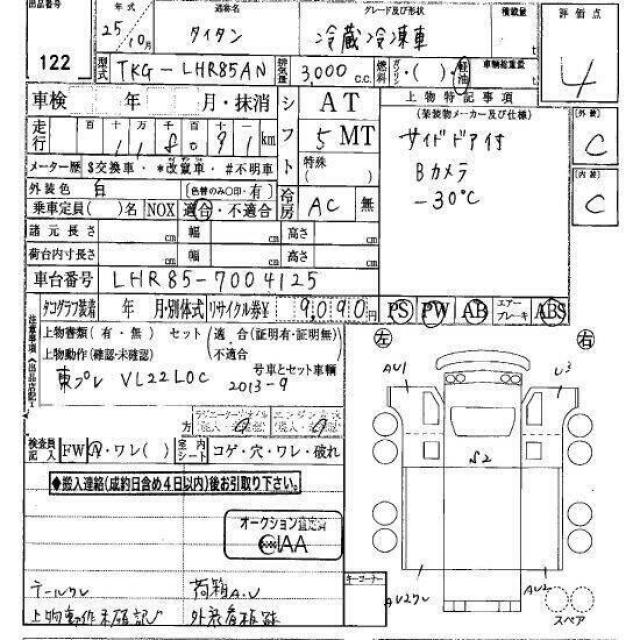 出品番号 122
年式 25/10月
通称名 タイタン
グレード及び形状 冷蔵冷凍車
積載量 t
評価点 4
型式 TKG-LHR85AN
排気量 3,000 c.c.
燃料 ガソリン・( )・軽油
車輌総重量 t
車検 年 月・抹消
シフト AT 5 MT
特殊 ( )
走行 百十万千百十 118091 km
メーター歴 $交換車・*改竄車・#不明車
外装色 白 (色替のみ○印・有)
乗車定員( )名 NOX 適合・不適合
冷房 AC 無
上物特記事項
(架装物メーカー及び仕様)
サイドドア付
Bカメラ
-30℃
(外装) C
(内装) C
諸元長さ cm 幅 cm 高さ cm
荷台内寸長さ cm 幅 cm 高さ cm
車台番号 LHR85-7004125
タコグラフ装着 年 月・別体式 リサイクル券¥ 9,090円
PS PW AB エアーブレーキ ABS
上物書類(有・無) セット(適合(証明有・証明無)
上物動作(確認・未確認) 不適合
号車とセット車輌
東プレ VL22LOC 2013-9
検査員記入 FW A・ワレ( ) 室内シート コゲ・穴・ワレ・破れ
◆搬入連絡(成約日含め4日以内)後お引取り下さい。
オークション査定済
CIAA
荷箱A.U
キーコーナー
左 右
AU1
U3
S2
AU2
スペア